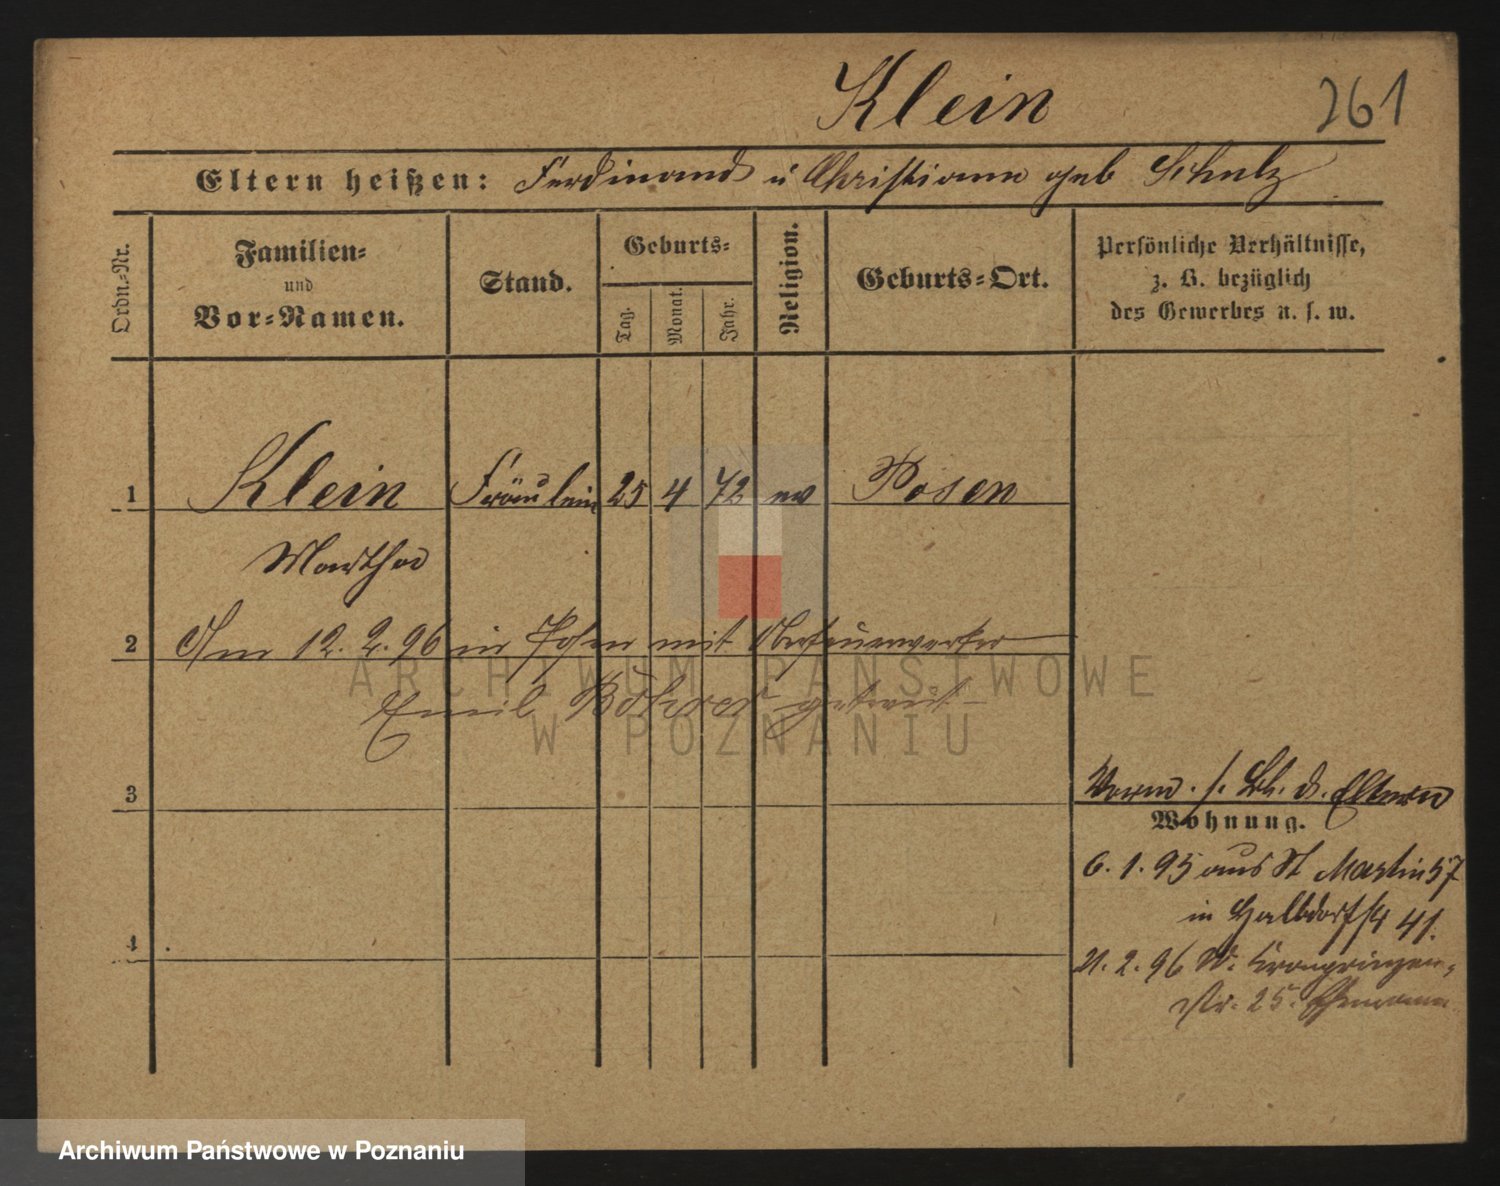 Klein
261
Eltern heißen: Ferdinand u Christiane geb Schulz
Ordn.-Nr.
Familien-
und
Vor-Namen.
Stand.
Geburts-
Tag.
Monat.
Jahr.
Religion.
Geburts-Ort.
Persönliche Verhältnisse,
z. B. bezüglich
des Gewerbes u. s. w.
1 Klein Fräulein 25 4 72 ev Posen
Martha
2 Am 12. 2. 96 in Posen mit Oberfeuerwerker
Emil getraut
ARCHIWUM PAŃSTWOWE
W POZNANIU
3
Verm. s. Bl. d. Eltern
Wohnung.
6. 1. 95 aus St Martin 57
in Halbdorfstr 41.
4
21. 2. 96 W. Kronprinzen-
str. 25. Ehemann
Archiwum Państwowe w Poznaniu